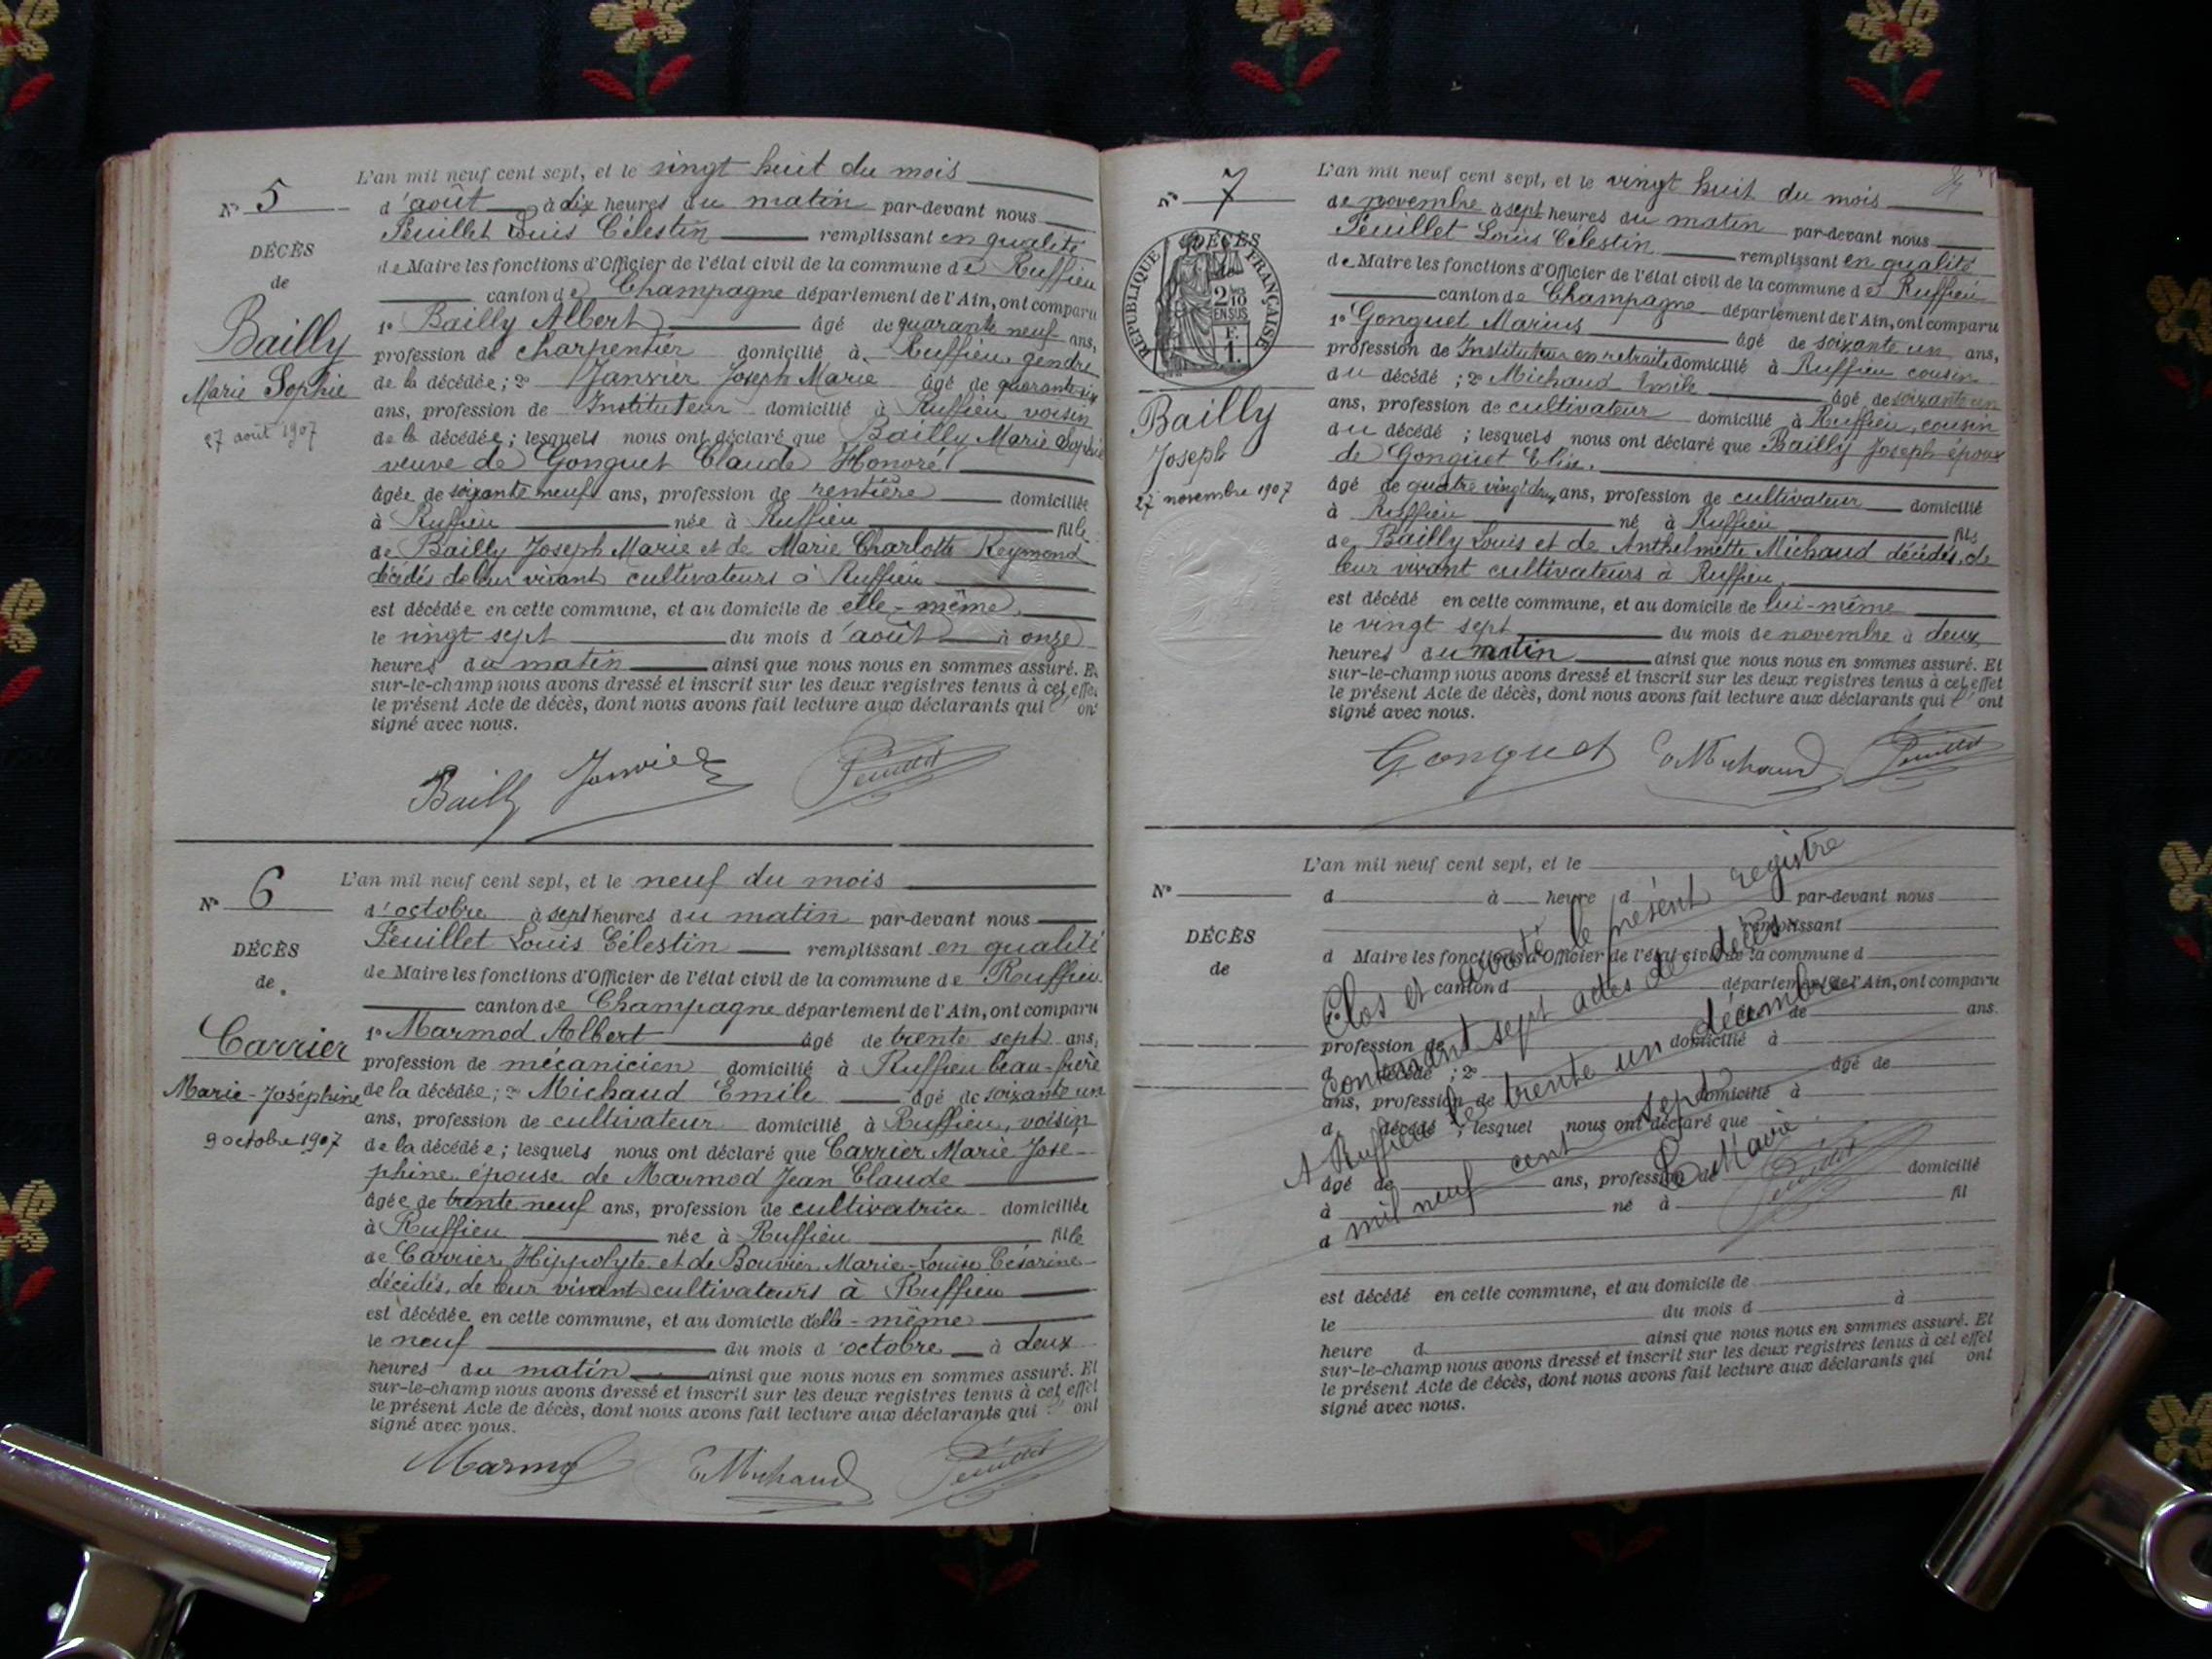 L'an mil neuf cent sept, et le vingt huit du mois
N° 5
d'août à dix heures du matin par-devant nous
Feuillet Louis Célestin remplissant en qualité
DÉCÈS
de Maire les fonctions d'Officier de l'état civil de la commune de Ruffieu
de
canton de Champagne département de l'Ain, ont comparu
Bailly
1° Bailly Albert âgé de quarante neuf ans,
profession de charpentier domicilié à Ruffieu gendre
Marie Sophie
de la décédée ; 2° Janvier Joseph Marie âgé de quarante six
ans, profession de Instituteur domicilié à Ruffieu voisin
27 août 1907
de la décédée ; lesquels nous ont déclaré que Bailly Marie Sophie
veuve de Gonguet Claude Honoré
âgée de soixante neuf ans, profession de rentière domiciliée
à Ruffieu née à Ruffieu fille
de Bailly Joseph Marie et de Marie Charlotte Reymond
décédés de leur vivant cultivateurs à Ruffieu
est décédée en cette commune, et au domicile de elle-même
le vingt sept du mois d'août à onze
heures du matin ainsi que nous nous en sommes assuré. Et
sur-le-champ nous avons dressé et inscrit sur les deux registres tenus à cet effet
le présent Acte de décès, dont nous avons fait lecture aux déclarants qui ont
signé avec nous.
Bailly Janvier Feuillet
L'an mil neuf cent sept, et le neuf du mois
N° 6
d'octobre à sept heures du matin par-devant nous
Feuillet Louis Célestin remplissant en qualité
DÉCÈS
de Maire les fonctions d'Officier de l'état civil de la commune de Ruffieu
de
canton de Champagne département de l'Ain, ont comparu
Carrier
1° Marmod Albert âgé de trente sept ans,
profession de mécanicien domicilié à Ruffieu beau-frère
Marie-Joséphine
de la décédée ; 2° Michaud Emile âgé de soixante un
ans, profession de cultivateur domicilié à Ruffieu, voisin
9 octobre 1907
de la décédée ; lesquels nous ont déclaré que Carrier Marie José-
phine épouse de Marmod Jean Claude
âgée de trente neuf ans, profession de cultivatrice domiciliée
à Ruffieu née à Ruffieu fille
de Carrier Hippolyte et de Bouvier Marie-Louise Césarine
décédés, de leur vivant cultivateurs à Ruffieu
est décédée en cette commune, et au domicile d'elle-même
le neuf du mois d'octobre à deux
heures du matin ainsi que nous nous en sommes assuré. Et
sur-le-champ nous avons dressé et inscrit sur les deux registres tenus à cet effet
le présent Acte de décès, dont nous avons fait lecture aux déclarants qui ont
signé avec nous.
Marmod E Michaud Feuillet
L'an mil neuf cent sept, et le vingt huit du mois
N° 7
de novembre à sept heures du matin par-devant nous
Feuillet Louis Célestin remplissant en qualité
DÉCÈS
de
RÉPUBLIQUE FRANÇAISE
2/10 EN SUS
F. 1.
de Maire les fonctions d'Officier de l'état civil de la commune de Ruffieu
canton de Champagne département de l'Ain, ont comparu
1° Gonguet Marius âgé de soixante un ans,
profession de Instituteur en retraite domicilié à Ruffieu cousin
du décédé ; 2° Michaud Emile âgé de soixante un
Bailly
ans, profession de cultivateur domicilié à Ruffieu, cousin
Joseph
du décédé ; lesquels nous ont déclaré que Bailly Joseph époux
de Gonguet Elise.
27 novembre 1907
âgé de quatre vingt deux ans, profession de cultivateur domicilié
à Ruffieu né à Ruffieu fils
de Bailly Louis et de Anthelmette Michaud décédés, de
leur vivant cultivateurs à Ruffieu,
est décédé en cette commune, et au domicile de lui-même
le vingt sept du mois de novembre à deux
heures du matin ainsi que nous nous en sommes assuré. Et
sur-le-champ nous avons dressé et inscrit sur les deux registres tenus à cet effet
le présent Acte de décès, dont nous avons fait lecture aux déclarants qui ont
signé avec nous.
Gonguet E Michaud Feuillet
L'an mil neuf cent sept, et le
N°
d à heure d par-devant nous
remplissant
DÉCÈS
d Maire les fonctions d'Officier de l'état civil de la commune d
de
canton d département de l'Ain, ont comparu
1° âgé de ans.
profession de domicilié à
d décédé ; 2° âgé de
ans, profession de domicilié à
d décédé ; lesquel nous ont déclaré que
âgé de ans, profession de domicilié
à né à fil
d
est décédé en cette commune, et au domicile de
le du mois d à
heure d ainsi que nous nous en sommes assuré. Et
sur-le-champ nous avons dressé et inscrit sur les deux registres tenus à cet effet
le présent Acte de décès, dont nous avons fait lecture aux déclarants qui ont
signé avec nous.
Clos et arrêté le présent registre
contenant sept actes de décès
A Ruffieu le trente un décembre
mil neuf cent sept
Le Maire
Feuillet